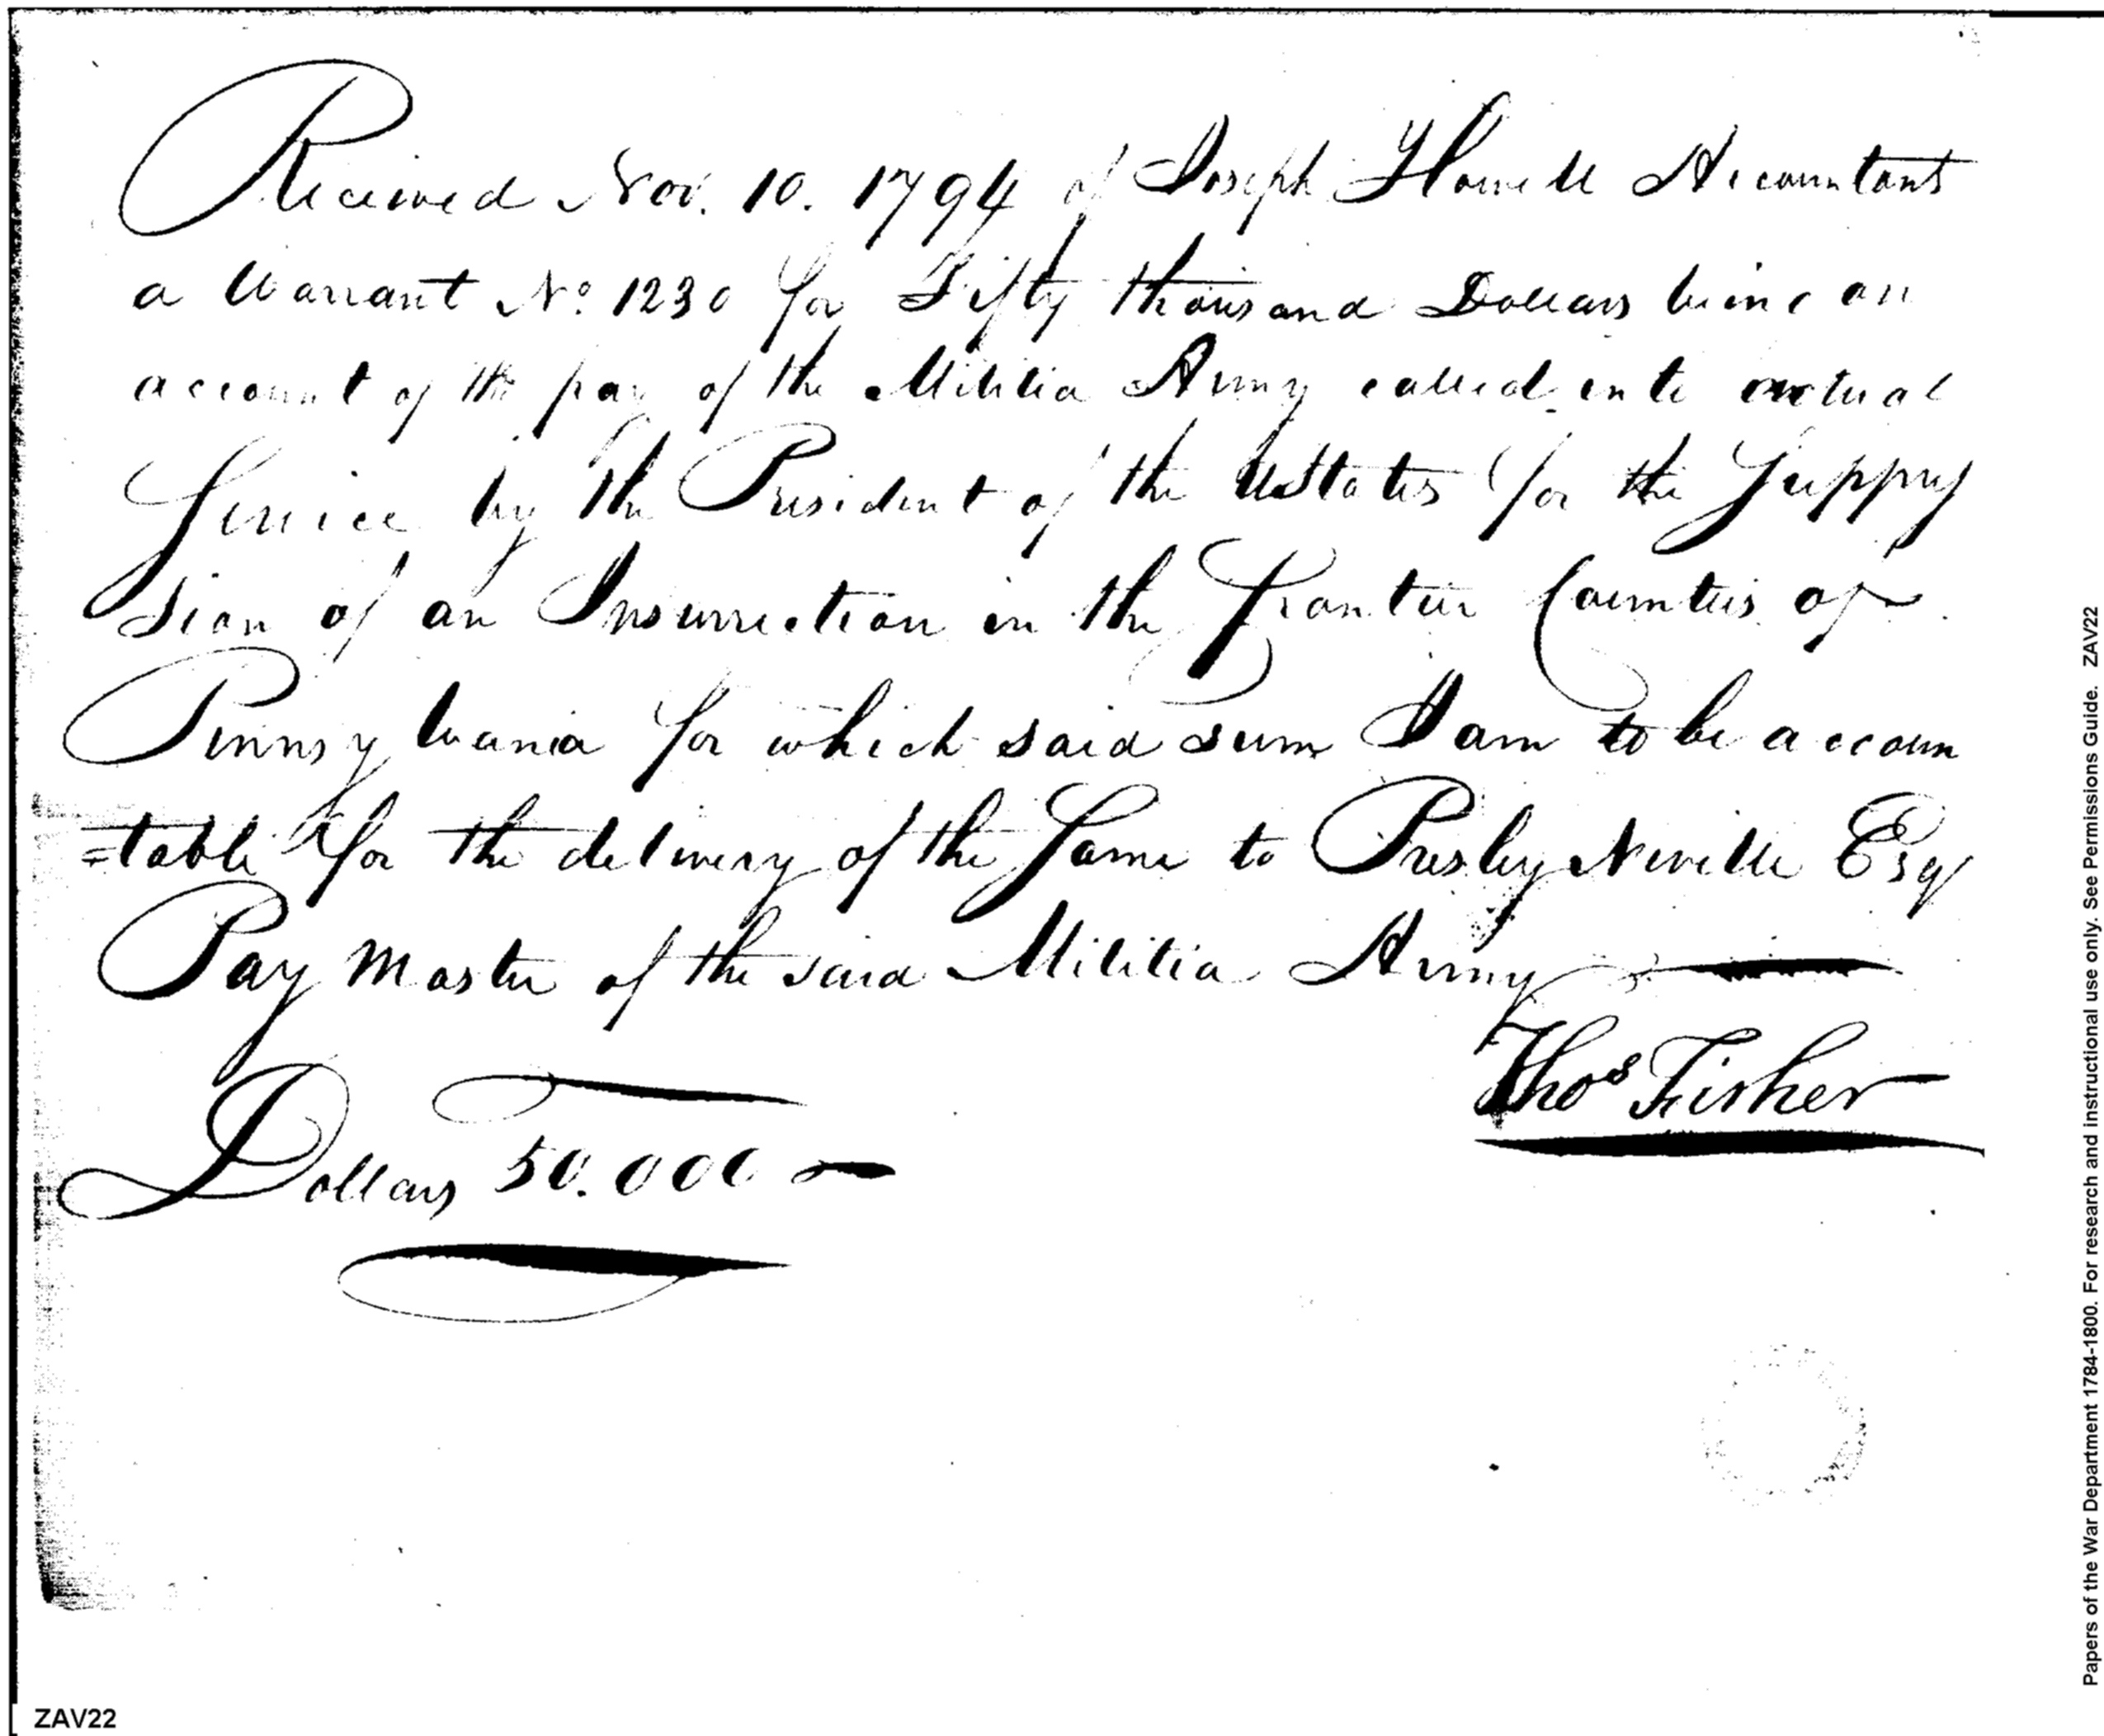 Received Nov. 10. 1794 of Joseph Howell Accountant
a Warrant No. 1230 for Fifty thousand Dollars being on
account of the pay of the Militia Army called into actual
Service by the President of the UStates for the Suppres
sion of an Insurrection in the frontier Counties of
Pennsylvania for which said sum I am to be accoun
=table for the delivery of the Same to Presley Neville Esqr
Pay Master of the said Militia Army
Thos Fisher
Dollars 50.000
ZAV22
Papers of the War Department 1784-1800. For research and instructional use only. See Permissions Guide. ZAV22